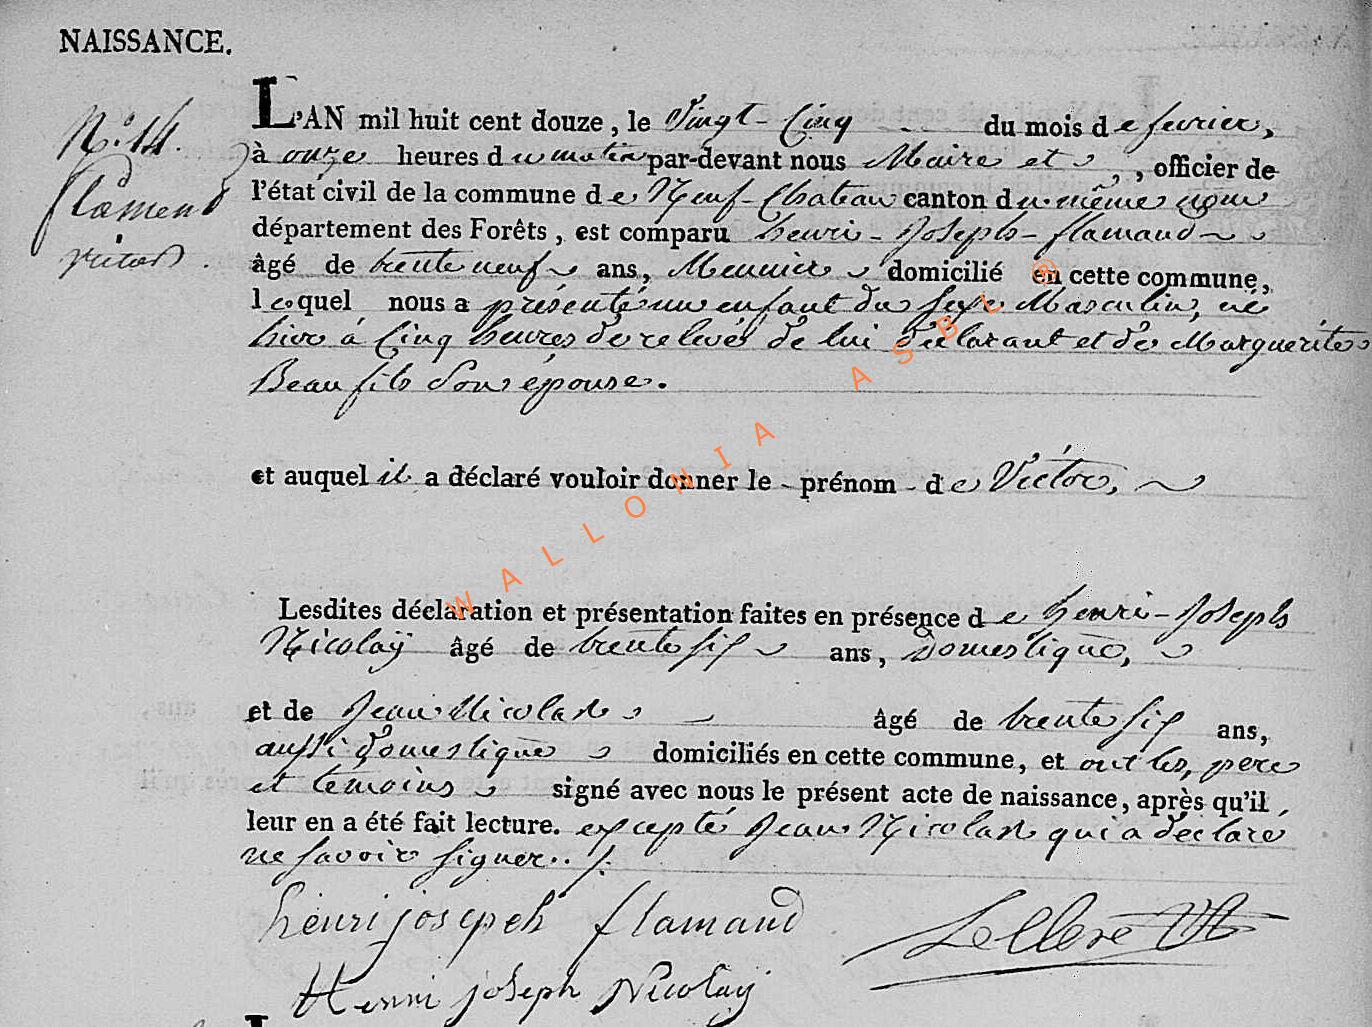 NAISSANCE.
N.º 14.
flament
victor.
L'AN mil huit cent douze, le Vingt-Cinq du mois de fevrier,
à onze heures du matin par-devant nous Maire et, officier de
l'état civil de la commune de Neuf-Chateau canton du même nom
département des Forêts, est comparu henri-Joseph-flamand
âgé de trente neuf ans, Meunier domicilié en cette commune,
lequel nous a présenté un enfant du sexe Masculin, né
hier à Cinq heures de relevée de lui déclarant et de Marguerite
Beaufils Son épouse.
et auquel il a déclaré vouloir donner le prénom de Victor,
Lesdites déclaration et présentation faites en présence de henri-Joseph
Nicolaÿ âgé de trente six ans, Domestique,
et de Jean Nicolas âgé de trente six ans,
aussi Domestique domiciliés en cette commune, et ont les, pere
et temoins signé avec nous le présent acte de naissance, après qu'il
leur en a été fait lecture. excepté Jean Nicolas qui a déclaré
ne savoir signer.
henri joseph flamand
Henri joseph Nicolaÿ
WALLONIA ASBL ®